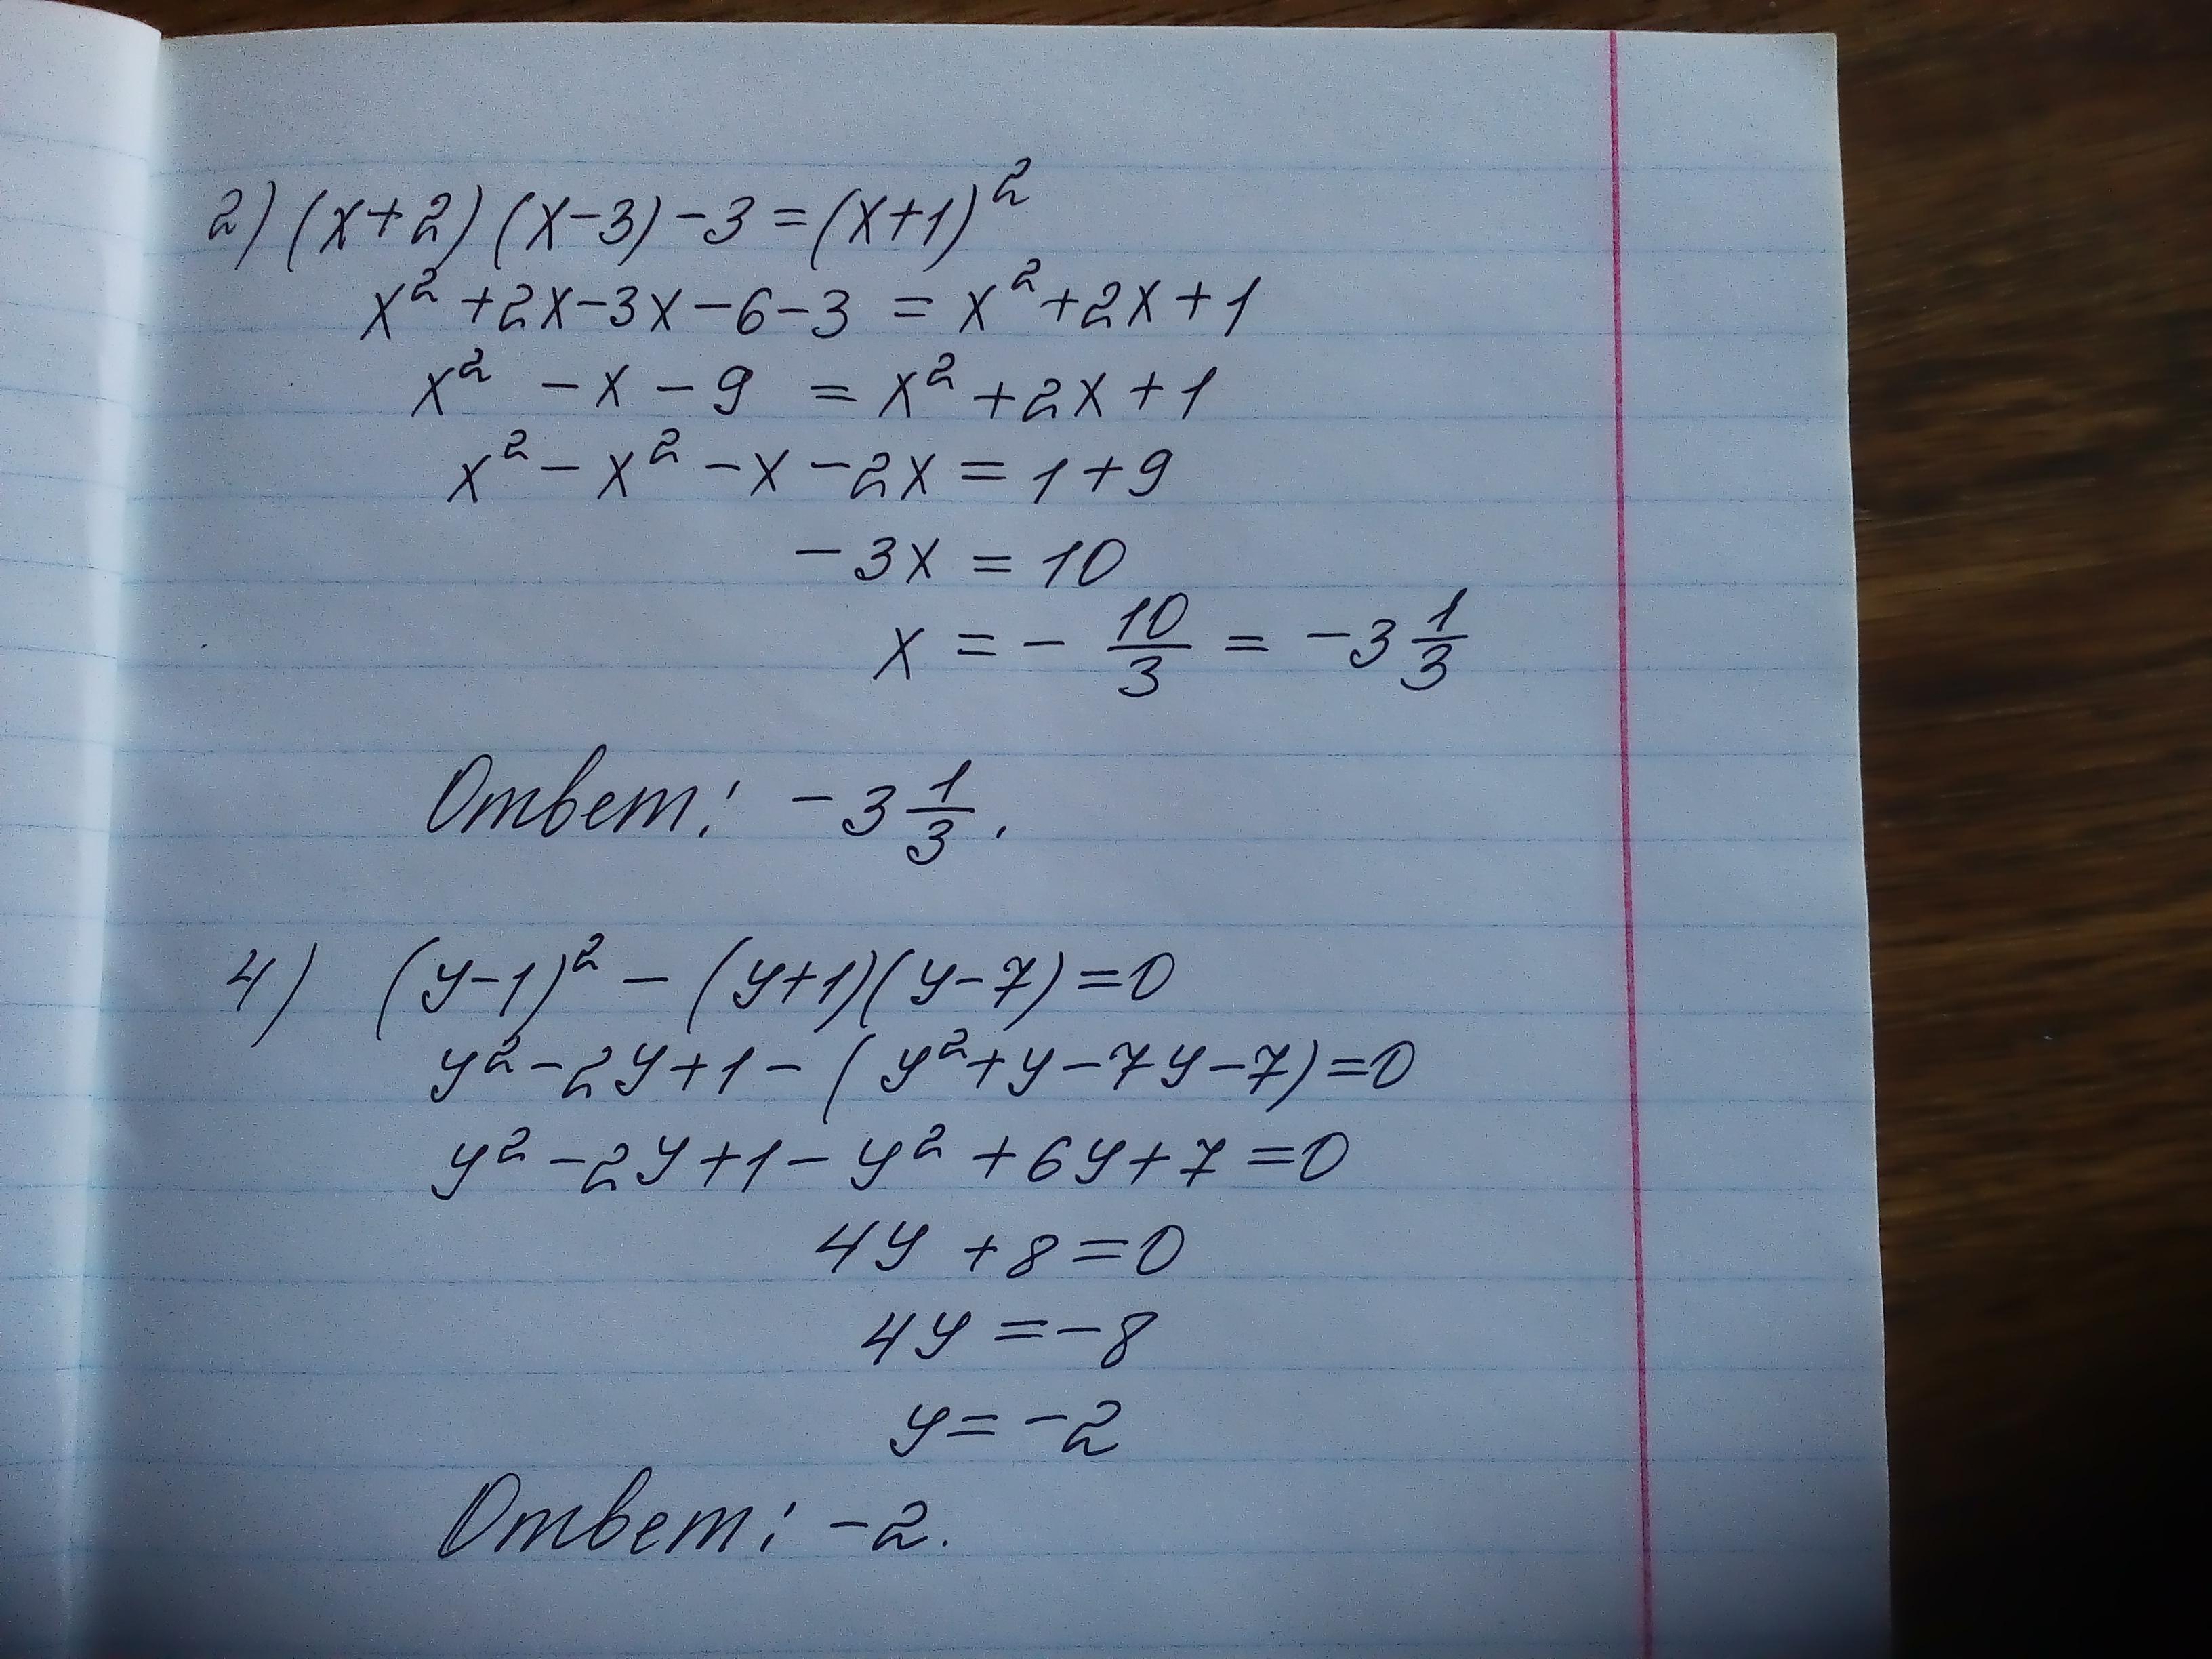 2) (x+2)(x-3)-3=(x+1)²
x²+2x-3x-6-3 = x²+2x+1
x² -x-9 = x²+2x+1
x²-x²-x-2x=1+9
-3x=10
x=-10/3=-3 1/3
Ответ: -3 1/3.
4) (y-1)²-(y+1)(y-7)=0
y²-2y+1-(y²+y-7y-7)=0
y²-2y+1-y²+6y+7=0
4y+8=0
4y=-8
y=-2
Ответ: -2.